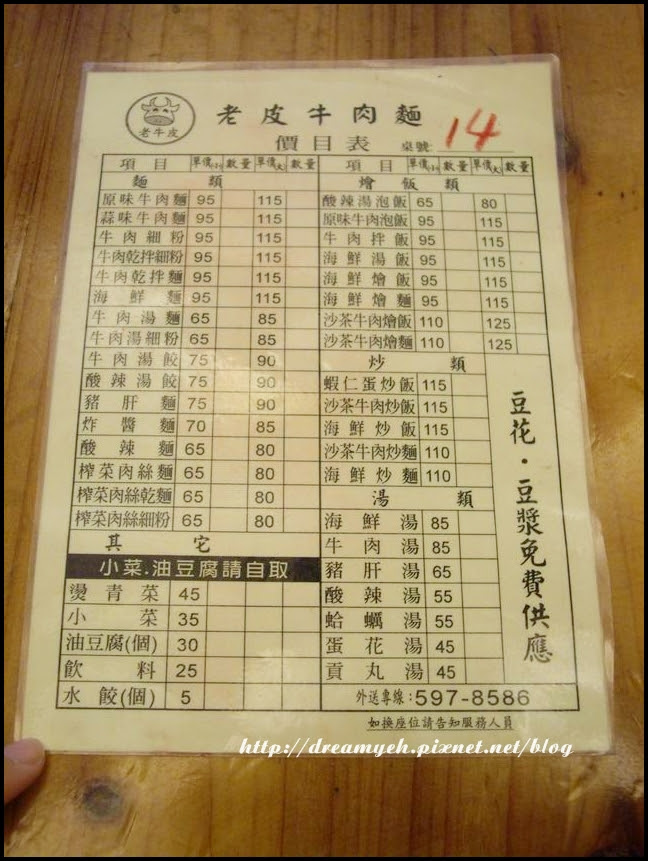 老牛皮
老皮牛肉麵
價目表 桌號: 14
項目 單價(小) 數量 單價(大) 數量
麵類
原味牛肉麵 95 115
蒜味牛肉麵 95 115
牛肉細粉 95 115
牛肉乾拌細粉 95 115
牛肉乾拌麵 95 115
海鮮麵 95 115
牛肉湯麵 65 85
牛肉湯細粉 65 85
牛肉湯餃 75 90
酸辣湯餃 75 90
豬肝麵 75 90
炸醬麵 70 85
酸辣麵 65 80
榨菜肉絲麵 65 80
榨菜肉絲乾麵 65 80
榨菜肉絲細粉 65 80
其它
小菜.油豆腐請自取
燙青菜 45
小菜 35
油豆腐(個) 30
飲料 25
水餃(個) 5
項目 單價(小) 數量 單價(大) 數量
燴飯類
酸辣湯泡飯 65 80
原味牛肉泡飯 95 115
牛肉拌飯 95 115
海鮮湯飯 95 115
海鮮燴飯 95 115
海鮮燴麵 95 115
沙茶牛肉燴飯 110 125
沙茶牛肉燴麵 110 125
炒類
蝦仁蛋炒飯 115
沙茶牛肉炒飯 115
海鮮炒飯 115
沙茶牛肉炒麵 110
海鮮炒麵 110
湯類
海鮮湯 85
牛肉湯 85
豬肝湯 65
酸辣湯 55
蛤蠣湯 55
蛋花湯 45
貢丸湯 45
豆花·豆漿免費供應
外送專線:597-8586
如換座位請告知服務人員
http://dreamyeh.pixnet.net/blog